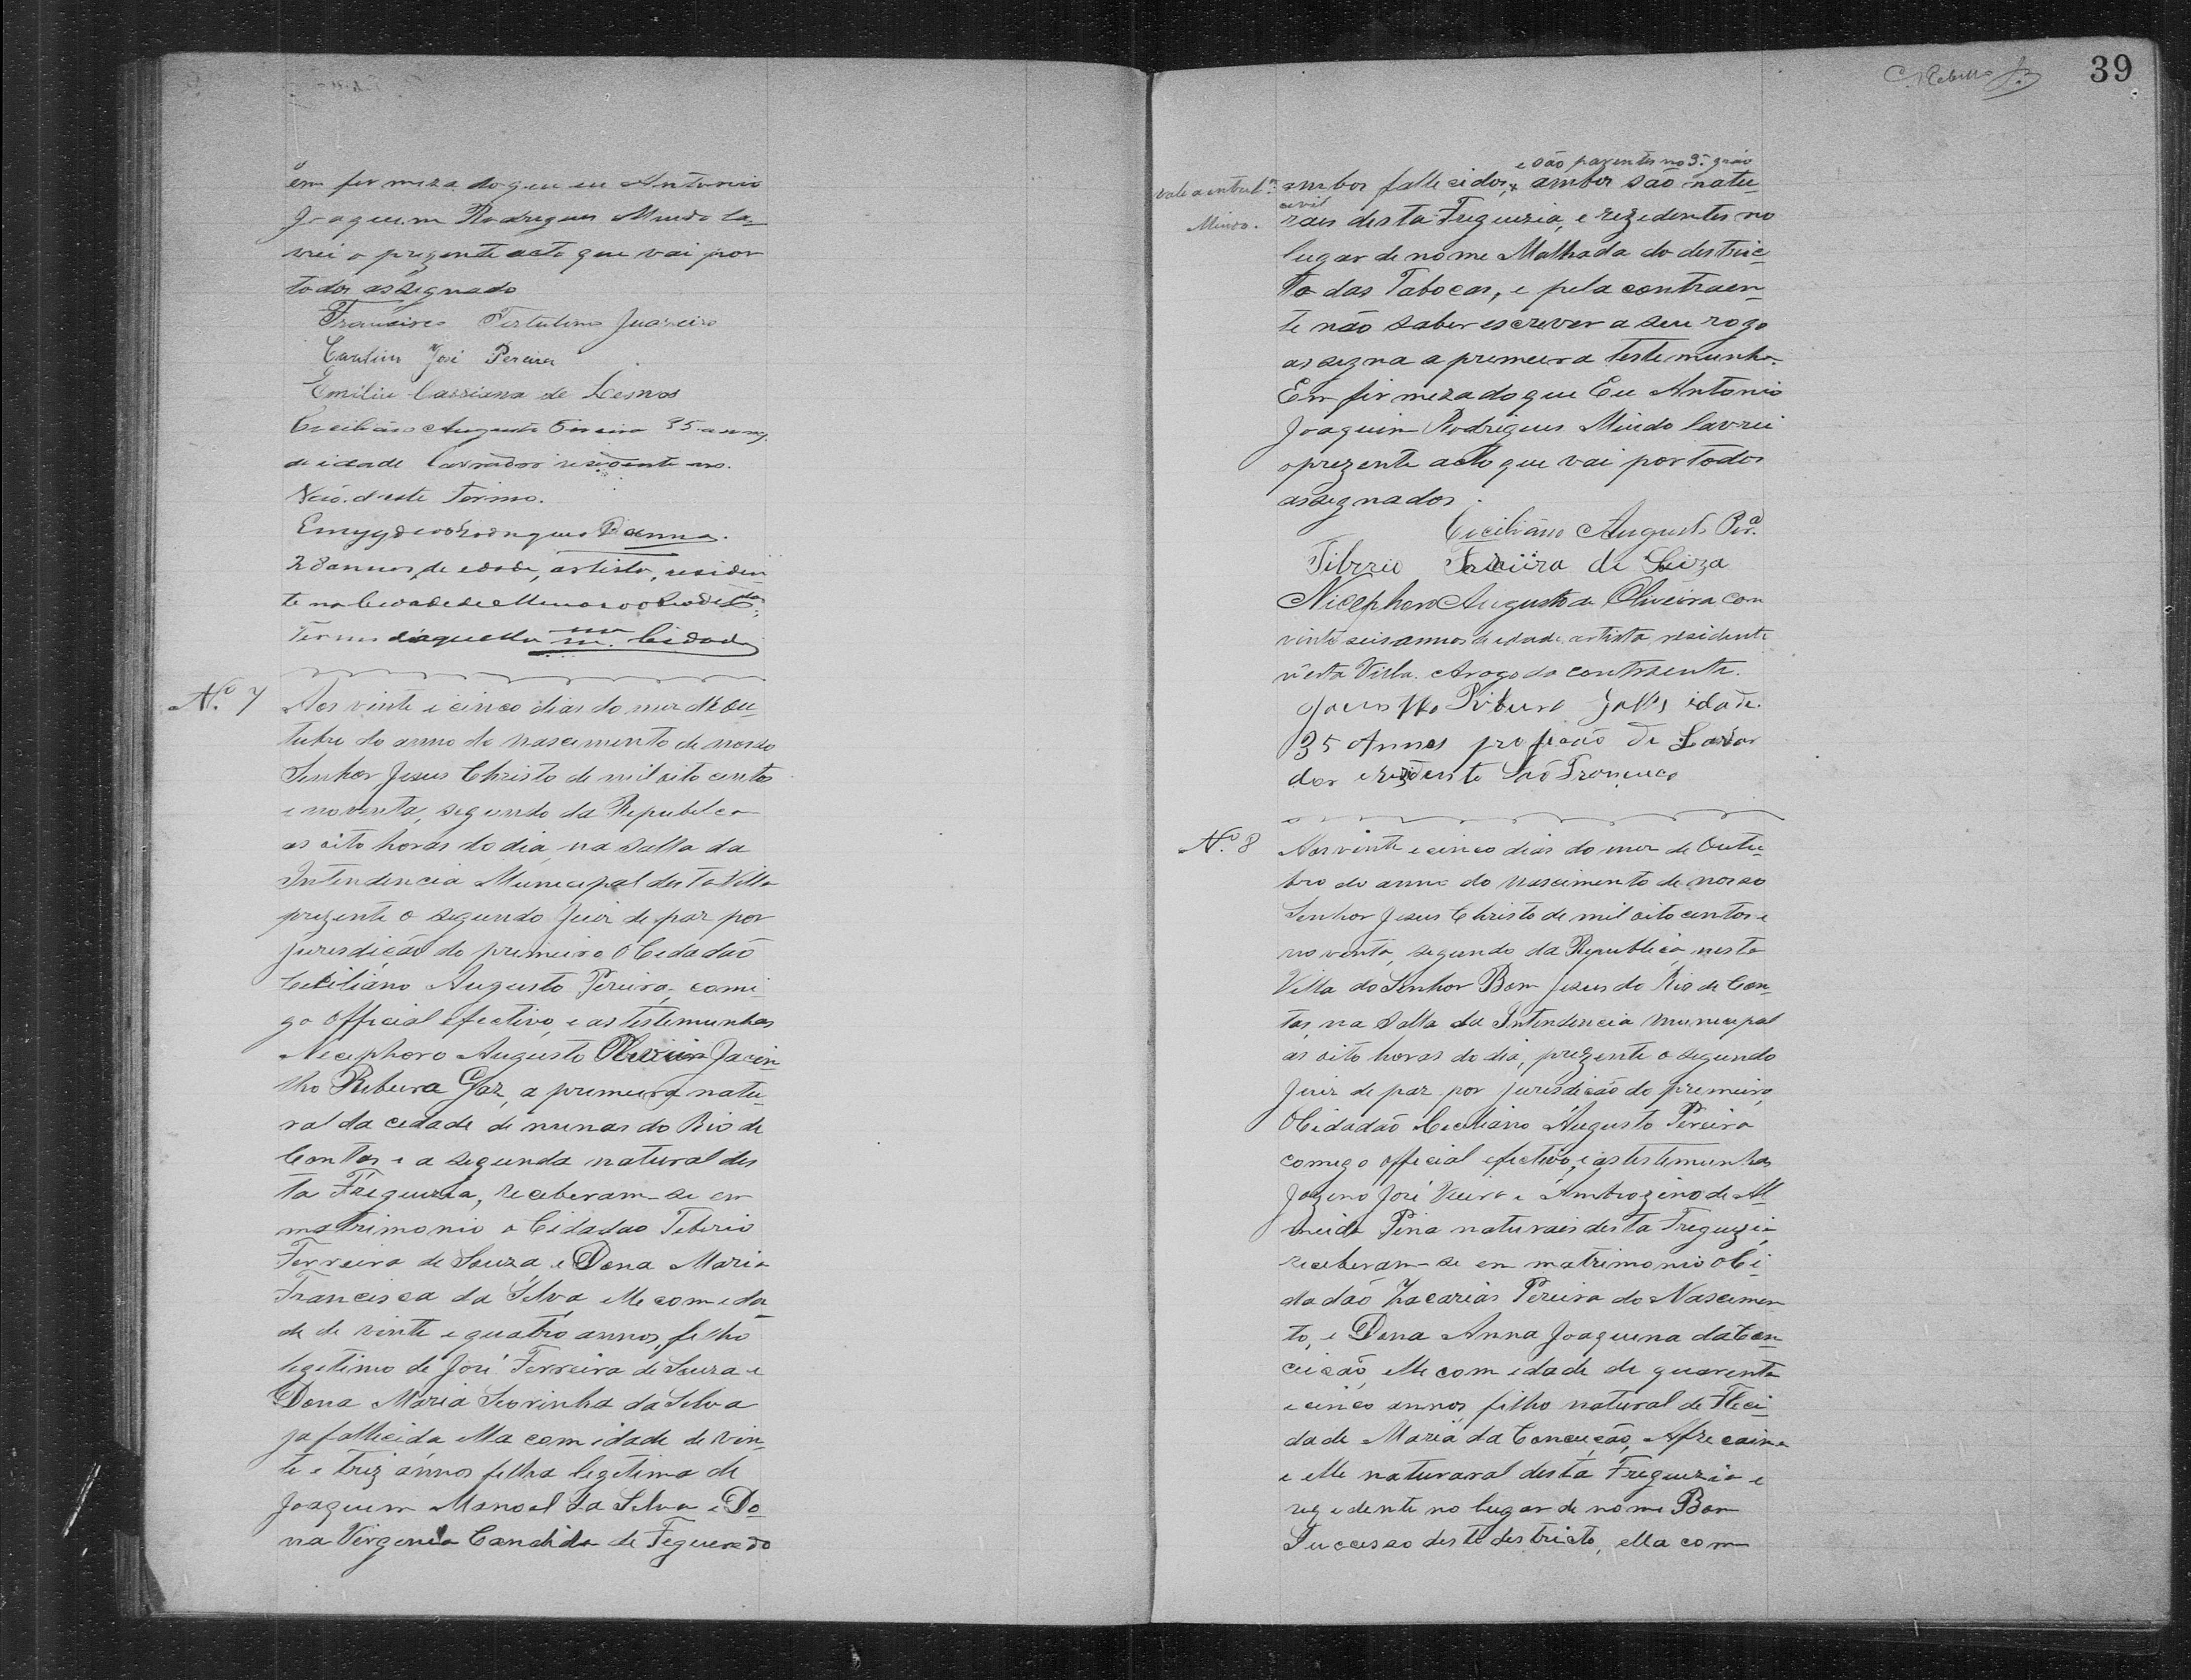 em firmeza do que eu Antonio
Joaquim Rodrigues Miudo la-
vrei o prezente acto que vai por
todos assegnado
Francisco Tertulino Juaneiro
José Pereira
Emilia Cassiana de Lemos
Ceciliano Augusto Pereira 35 annos
de idade lavrador residente no
deste termo.
Emygdio Rodrigues Danna.
28 annos de edade, artista, residen-
te na Cidade de Minas do Rio de
Termo daquella Cidade
N.º 7
Aos vinte e cinco dias do mez de Ou-
tubro do anno do nascimento de nosso
Senhor Jesus Christo de mil oito centos
e noventa, segundo da Republica
as oito horas do dia na Salla da
Intendencia Municipal desta Villa
prezente o segundo Juiz de paz por
juresdição do primeiro o Cedadaõ
Ceciliano Augusto Pereira, comi-
go official efectivo, e as testemunhas
Necephoro Augusto Oliveira Jacin
tho Rebeira Gaz, a premeira natu-
ral da cedade de minas do Rio de
Contas e a segunda natural des
ta Freguezia, receberam-se em
matrimonio o Cidadao Teberio
Ferreira de Souza e Dona Maria
Francisca da Silva, elle com eda-
de de vinte e quatro annos, filho
legetimo de José Ferreira de Souza e
Dona Maria Seorinha da Selva
ja fallecida ella com idade de vin-
te e trez annos filha legetima de
Joaquim Manoel da Selva e Do-
na Vergenia Candida de Fegueredo
39
C. Rebello Jr
e são parentes no 3.º gráo
vale a entrel.ª
ambos fallecidos, e ambos são natu-
civil
Miudo.
raes desta Freguezia, e rezedentes no
lugar de nome Malhada do destric-
to das Tabocas, e pela contraen-
te não saber escrever a seu rogo
assegna a premeira testemunha.
Em firmeza do que Eu Antonio
Joaquim Rodrigues Miudo lavrei
o prezente acto que vai por todos
assegnados.
Ceciliano Augusto Per.ª
Tibrzio Ferreiira de Soiza
Nicephoro Augusto de Oliveira com
vinte seis annos de edade artista residente
n'esta Villa. Arogo da contraente.
Jacintho Ribeiro idade
35 Annos profição de Lavra
dor e rezidente São Francisco
N.º 8
Aos vinte e cinco dias do mez de Outu-
bro do anno do nascimento de nosso
Senhor Jesus Christo de mil oito centos e
noventa, segundo da Republica, nesta
Villa do Senhor Bom Jesus do Rio de Con-
tas, na Salla da Intendencia municepal
as oito horas do dia, prezente o segundo
juiz de paz por jurisdicão do premeiro
O Cidadaõ Ceciliano Augusto Pereira
comego official efectivo, e as testemunhas
Jozeno José Vieira e Ambrozino de Al
meida Pina naturais desta Freguezia,
receberam-se em matrimonio o Ci-
dadão Zacarias Pereira do Nascimen
to, e Dona Anna Joaquina da Con-
ceicão, elle com edade de quarenta
e cinco annos filho natural de Fleci-
dade Maria da Conceição, Afrecaina
e elle naturaral desta Freguezia e
rezedente no lugar de nome Bom
Sucesso deste destricto, ella com